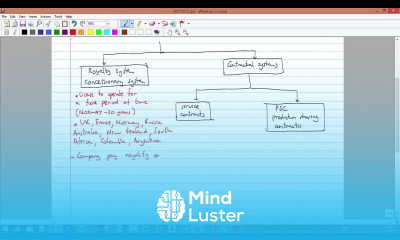 Royalty system
Concessionary system
Contractual systems
• License to operate for
a fixed period of time
(Norway - 30 years)
• UK, France, Norway, Russia
Australia, New Zealand, South
Africa, Colombia, Argentina
- Company pay royalty or
service
contracts
PSC
production sharing
contracts
Mind
Luster